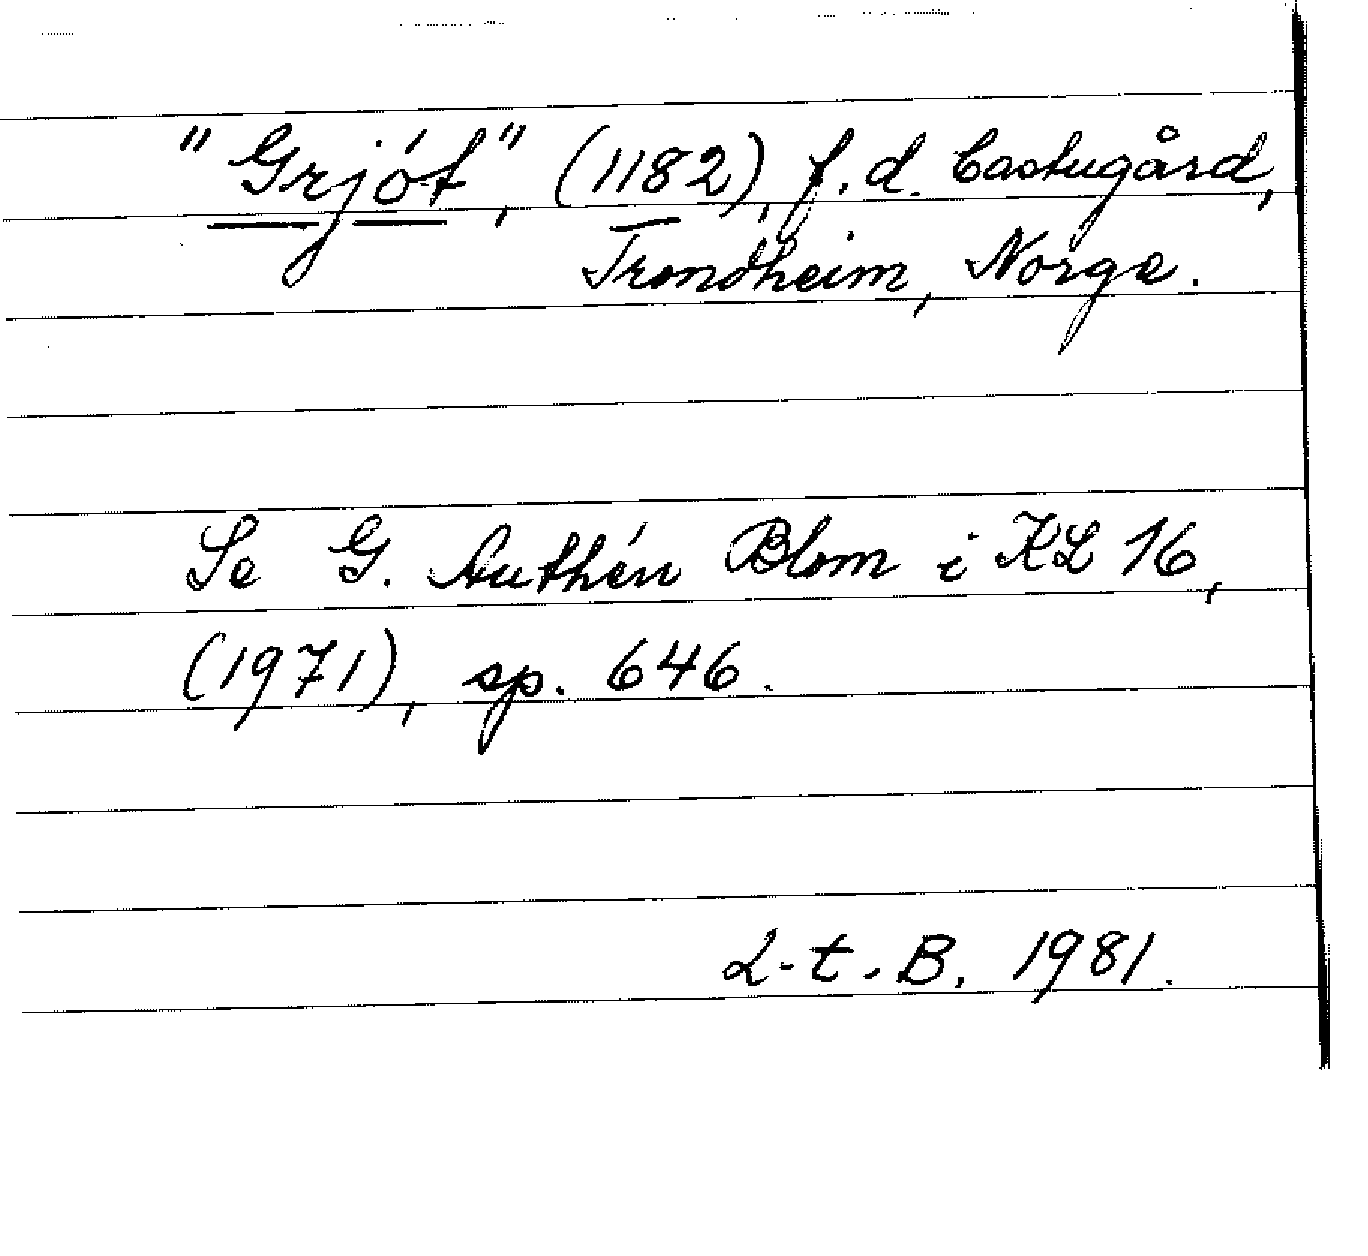 "Grjót", (1182), f.d. bastugård,
Trondheim, Norge.
Se G. Authén Blom i KL 16,
(1971), sp. 646.
L-t. B. 1981.